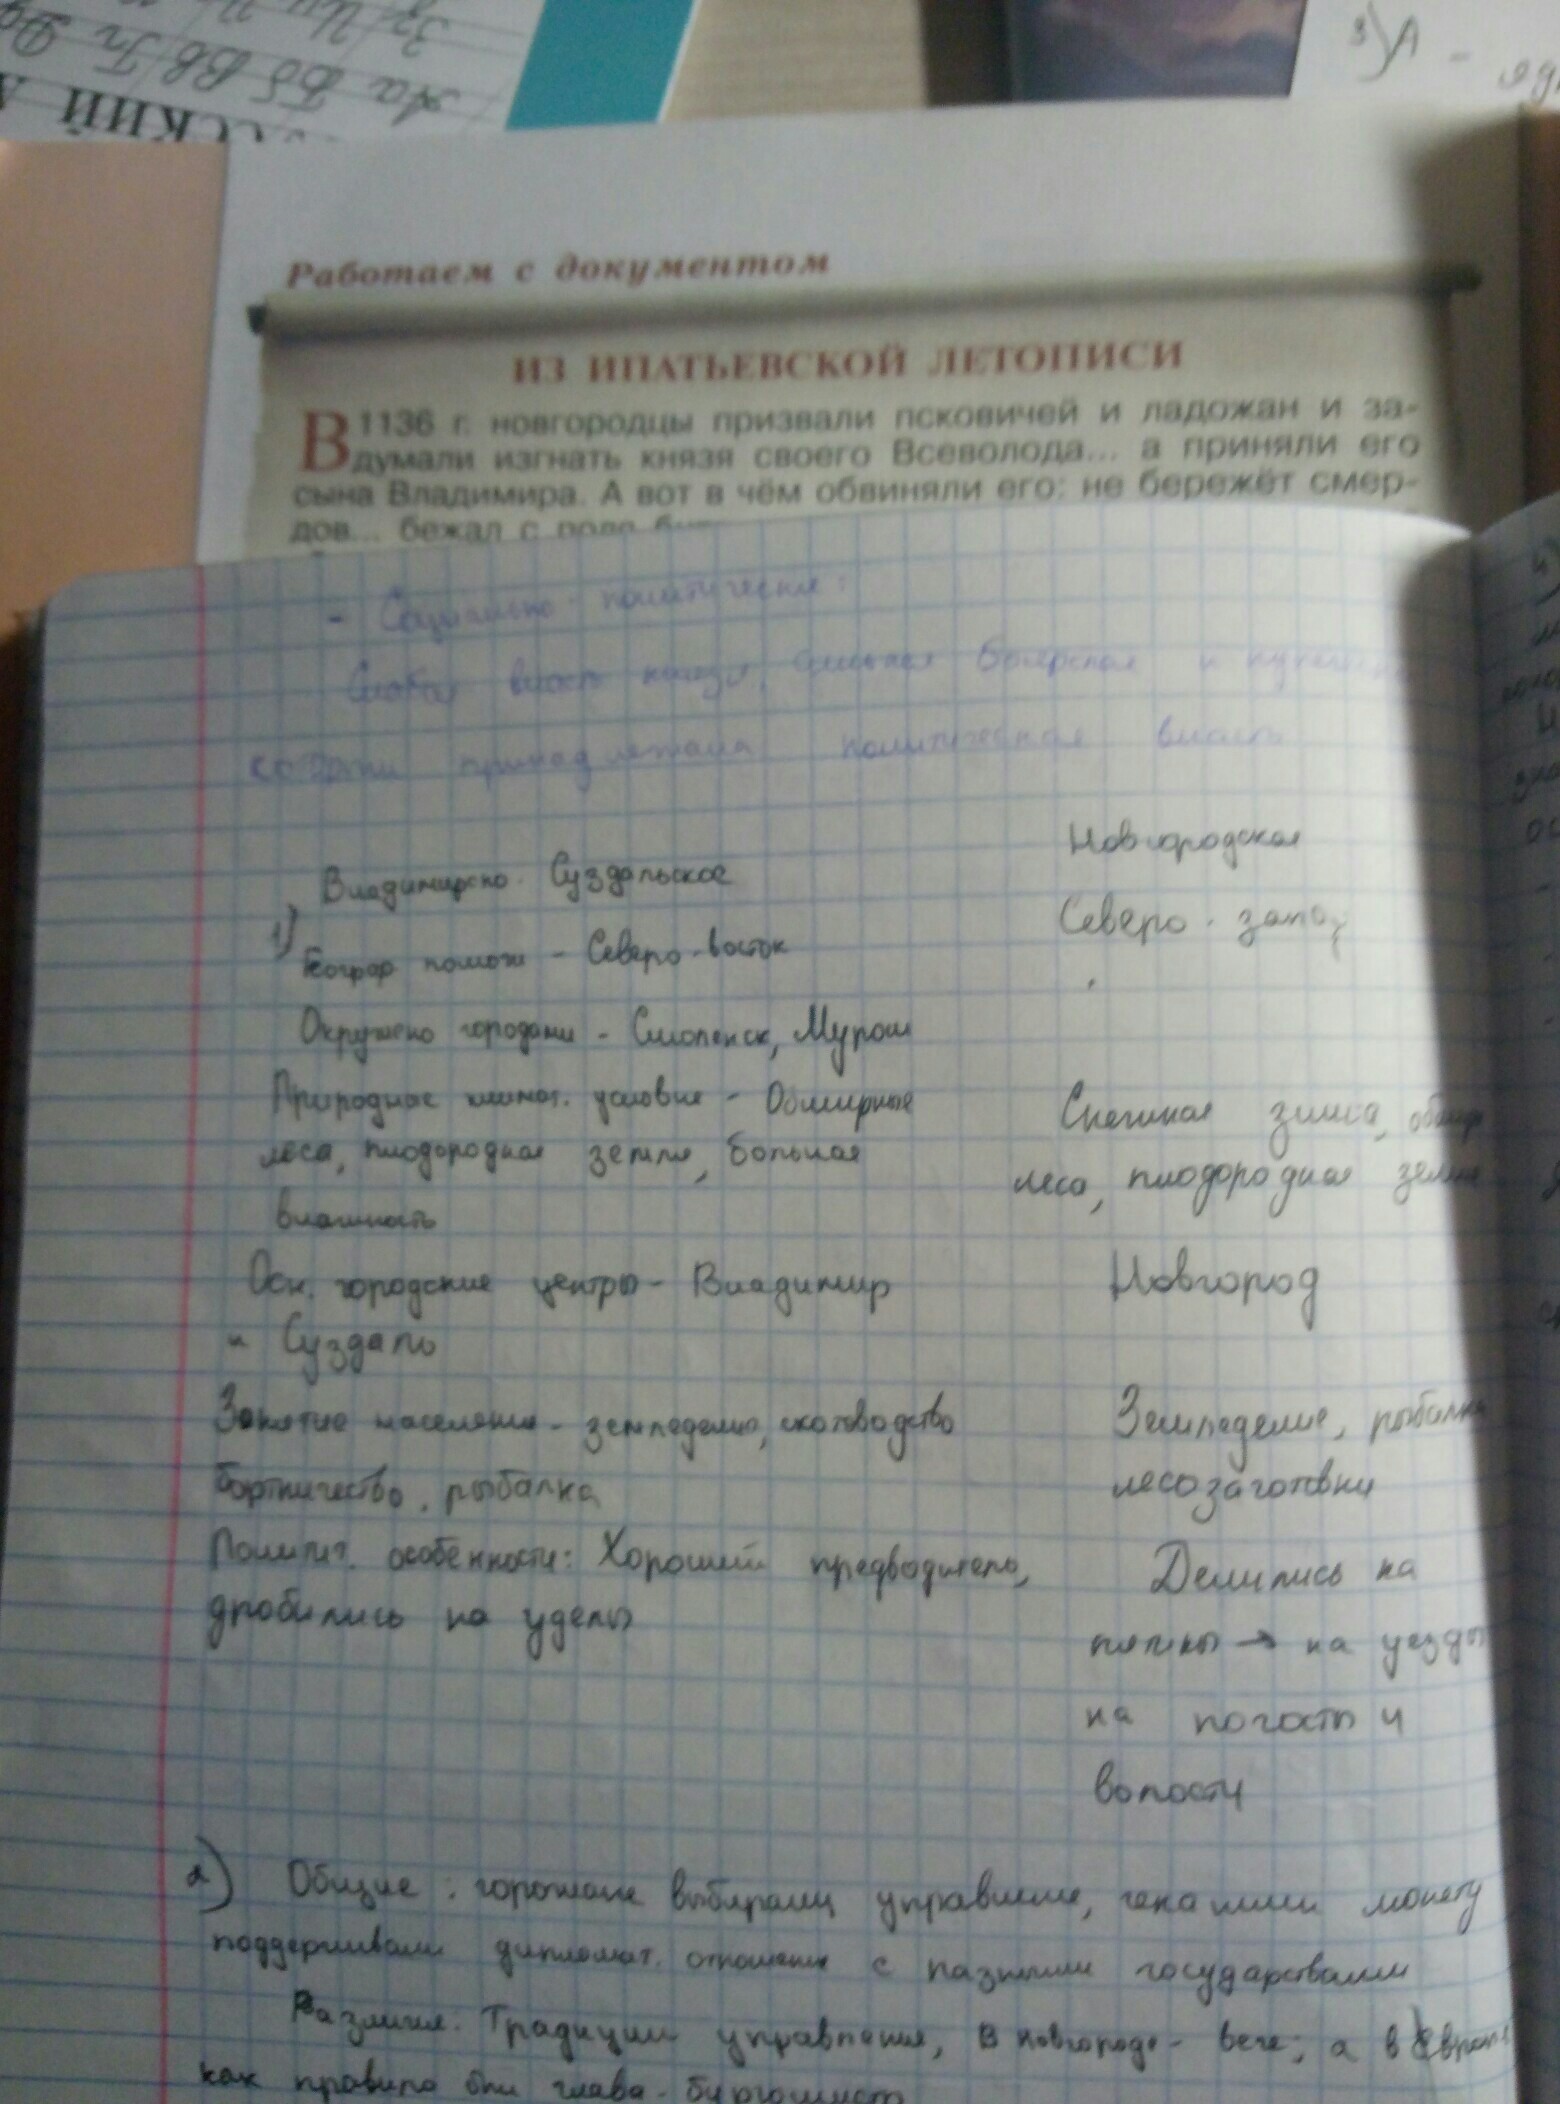 Аа Бб Вв Гг Дд
Работаем с документом
ИЗ ИПАТЬЕВСКОЙ ЛЕТОПИСИ
В 1136 г. новгородцы призвали псковичей и ладожан и за-
думали изгнать князя своего Всеволода... а приняли его
сына Владимира. А вот в чём обвиняли его: не бережёт смер-
дов... бежал с поля
- Социально-политические:
Слабая власть князя, сильная боярская и
которым принадлежала политическая власть
Владимирско-Суздальское Новгородская
1) Географ полож - Северо-восток Северо-запад
Окружено городами - Смоленск, Муром
Природные климат. условия - Обширные Снежная зима,
леса, плодородная земля, большая леса, плодородная земля
влажность
Осн. городские центры - Владимир Новгород
и Суздаль
Занятие населения - земледелие, скотоводство Земледелие, рыбалка
бортничество, рыбалка лесозаготовки
Политич. особенности: Хороший предводитель, Делились на
дробились на уделы пятины → на уезды
на погосты и
волости
2) Общие: горожане выбирали управление, чеканили монету
поддерживали дипломат. отношения с разными государствами
Различия: Традиции управления, в Новгороде - вече; а в Европе
как правило был глава - бургомистр
3) А -